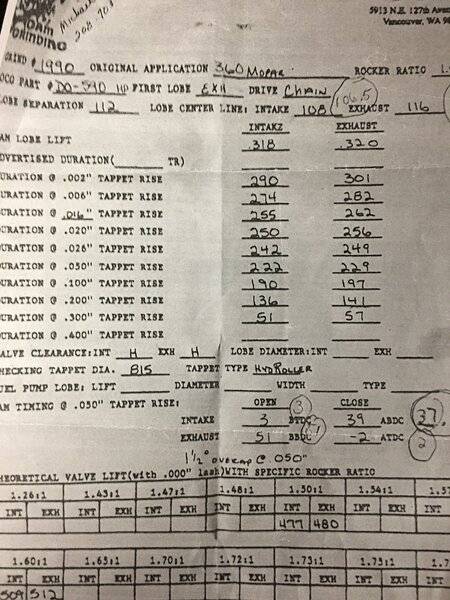 5913 N.E. 127th Aven
Vancouver, WA 98
Cam
GRINDING
GRIND # 1990 ORIGINAL APPLICATION 360 Mopar ROCKER RATIO 1.
OCO PART # DO-590 HP FIRST LOBE EXH DRIVE Chain
LOBE SEPARATION 112 LOBE CENTER LINE: INTAKE 108 106.5 EXHAUST 116
INTAKE EXHAUST
AM LOBE LIFT .318 .320
ADVERTISED DURATION( TR)
DURATION @ .002" TAPPET RISE 290 301
DURATION @ .006" TAPPET RISE 274 282
DURATION @ .016" TAPPET RISE 255 262
DURATION @ .020" TAPPET RISE 250 256
DURATION @ .026" TAPPET RISE 242 249
DURATION @ .050" TAPPET RISE 222 229
DURATION @ .100" TAPPET RISE 190 197
DURATION @ .200" TAPPET RISE 136 141
DURATION @ .300" TAPPET RISE 51 57
DURATION @ .400" TAPPET RISE
VALVE CLEARANCE:INT H EXH H LOBE DIAMETER:INT EXH
CHECKING TAPPET DIA. 815 TAPPET TYPE HYDROLLER
UEL PUMP LOBE: LIFT DIAMETER WIDTH TYPE
AM TIMING @ .050" TAPPET RISE: OPEN CLOSE
INTAKE 3 BTDC 39 ABDC 37.
EXHAUST 51 BBDC -2 ATDC 2
1 1/2° overlap @ .050"
HEORETICAL VALVE LIFT(with .000" lash)WITH SPECIFIC ROCKER RATIO
1.26:1 1.43:1 1.47:1 1.48:1 1.50:1 1.54:1 1.57
INT EXH INT EXH INT EXH INT EXH INT EXH INT EXH INT
477 480
1.60:1 1.65:1 1.70:1 1.72:1 1.73:1 1.75:1 1.7
INT EXH INT EXH INT EXH INT EXH INT EXH INT EXH INT
509 512